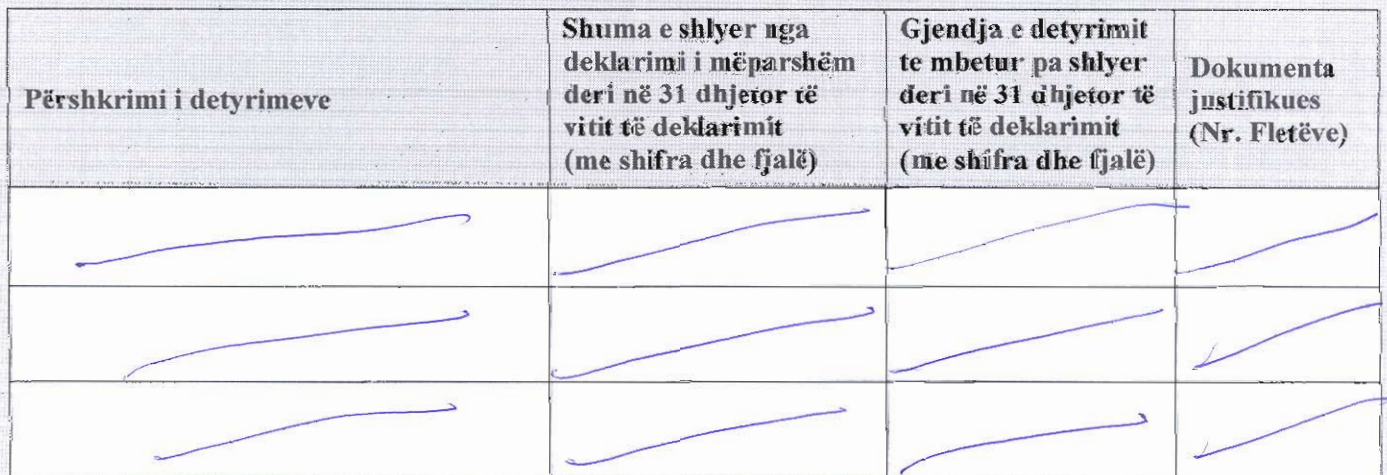 Përshkrimi i detyrimeve
Shuma e shlyer nga
deklarimi i mëparshëm
deri në 31 dhjetor të
vitit të deklarimit
(me shifra dhe fjalë)
Gjendja e detyrimit
te mbetur pa shlyer
deri në 31 dhjetor të
vitit të deklarimit
(me shifra dhe fjalë)
Dokumenta
justifikues
(Nr. Fletëve)